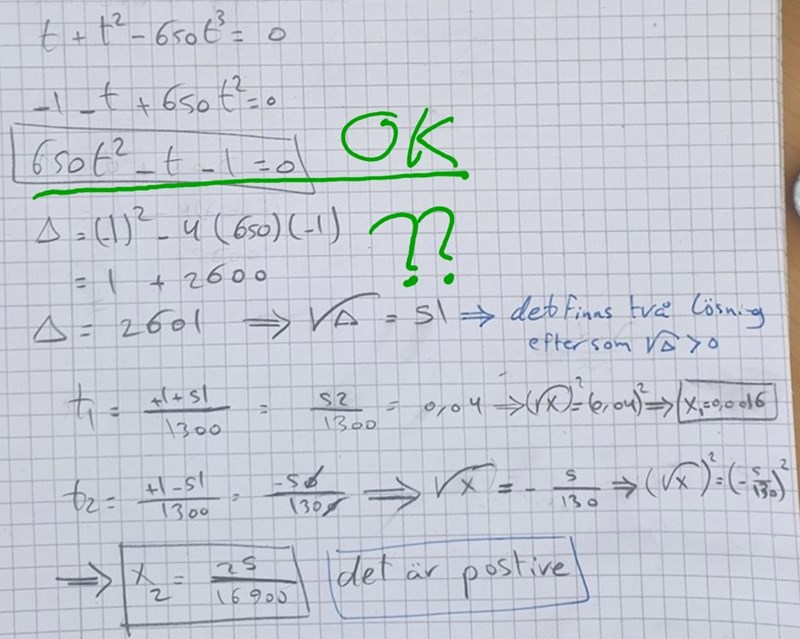 t + t² - 650t³ = 0
-1 - t + 650t² = 0
650t² - t - 1 = 0 OK
Δ = (-1)² - 4(650)(-1) ??
= 1 + 2600
Δ = 2601 ⟹ √Δ = 51 ⟹ det finns två lösning
eftersom √Δ > 0
t₁ = +1+51/1300 = 52/1300 = 0,04 ⟹ (√x)² = (0,04)² ⟹ x₁=0,0016
t₂ = +1-51/1300 = -50/1300 ⟹ √x = - 5/130 ⟹ (√x)² = (-5/130)²
⟹ x₂ = 25/16900 det är postive